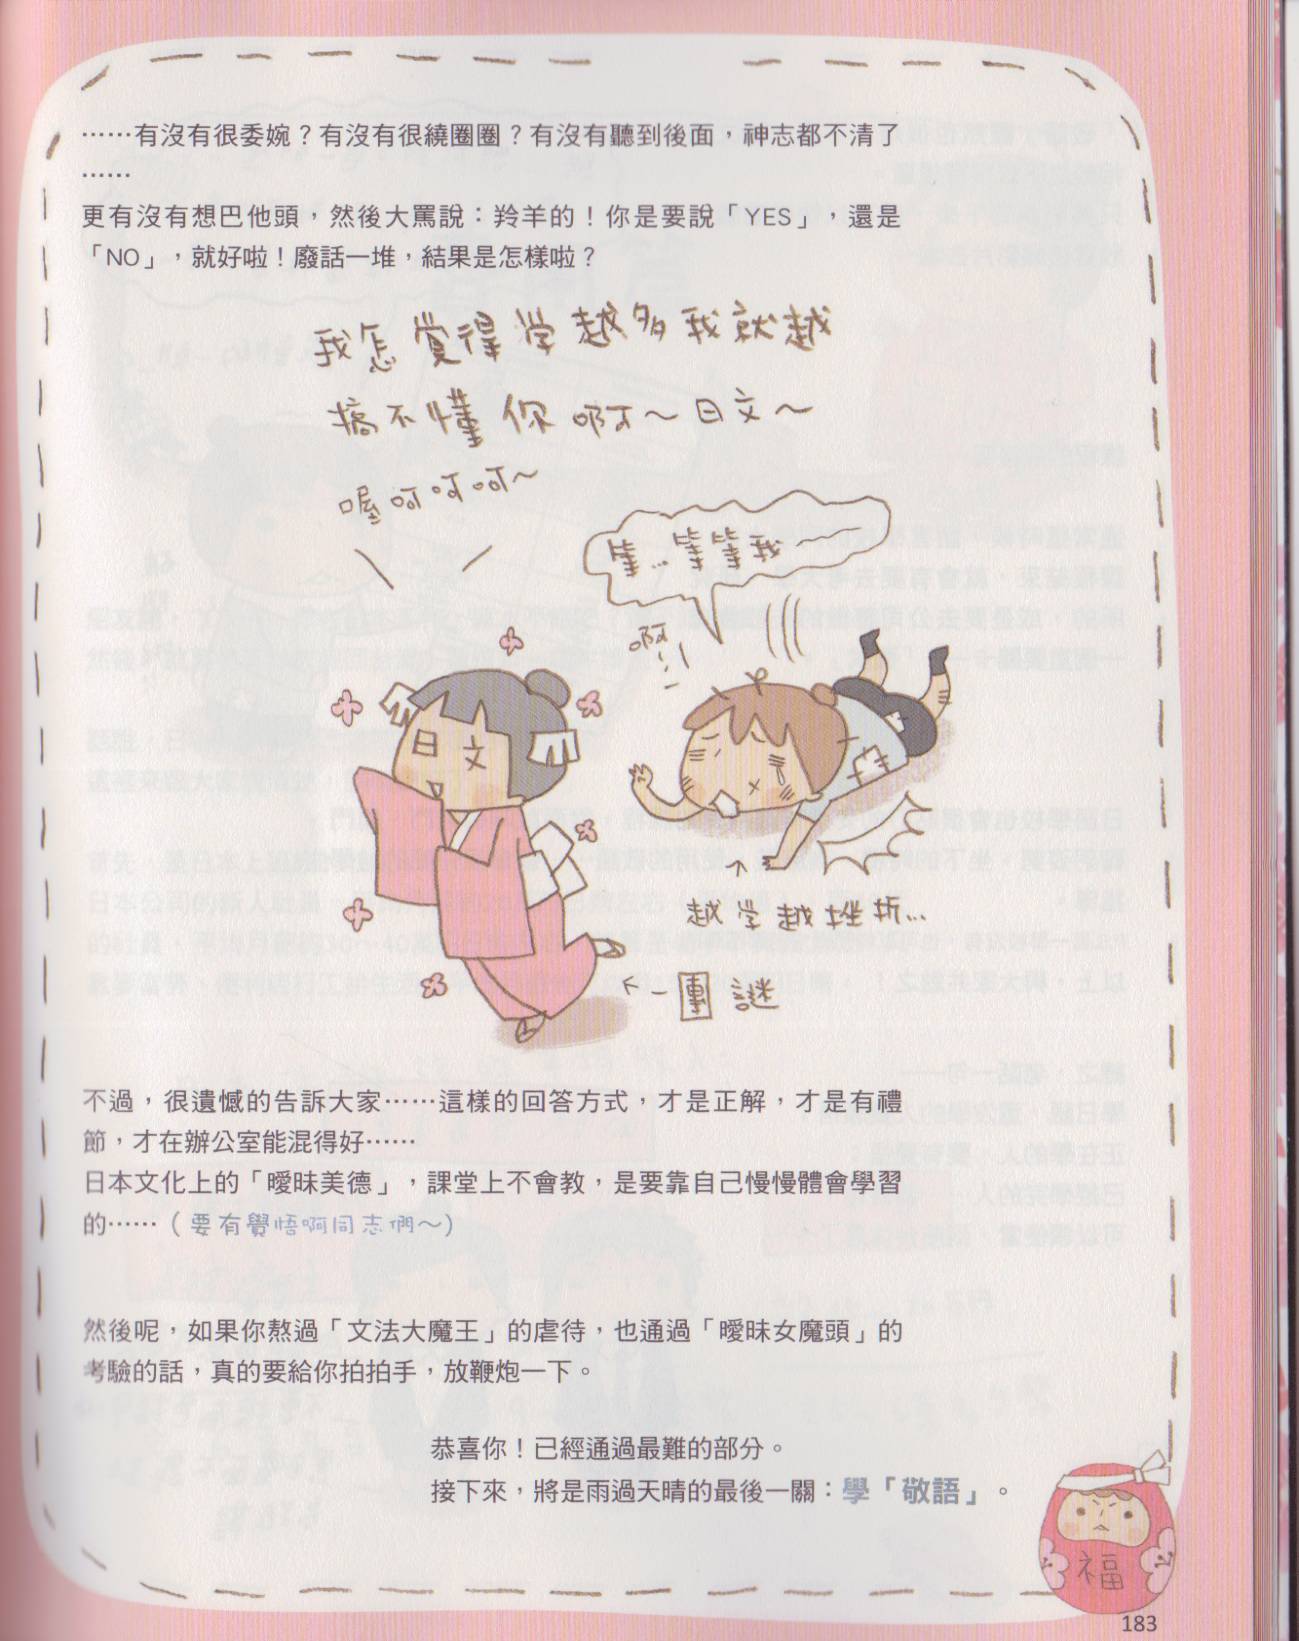 ……有沒有很委婉？有沒有很繞圈圈？有沒有聽到後面，神志都不清了
……
更有沒有想巴他頭，然後大罵說：羚羊的！你是要說「YES」，還是
「NO」，就好啦！廢話一堆，結果是怎樣啦？
我怎覺得学越多我就越
搞不懂你啊～日文～
喔呵呵呵～
等…等等我
啊…!!
日文
越学越挫折…
←一團謎
不過，很遺憾的告訴大家……這樣的回答方式，才是正解，才是有禮
節，才在辦公室能混得好……
日本文化上的「曖昧美德」，課堂上不會教，是要靠自己慢慢體會學習
的……（要有覺悟啊同志們～）
然後呢，如果你熬過「文法大魔王」的虐待，也通過「曖昧女魔頭」的
考驗的話，真的要給你拍拍手，放鞭炮一下。
恭喜你！已經通過最難的部分。
接下來，將是雨過天晴的最後一關：學「敬語」。
福
183